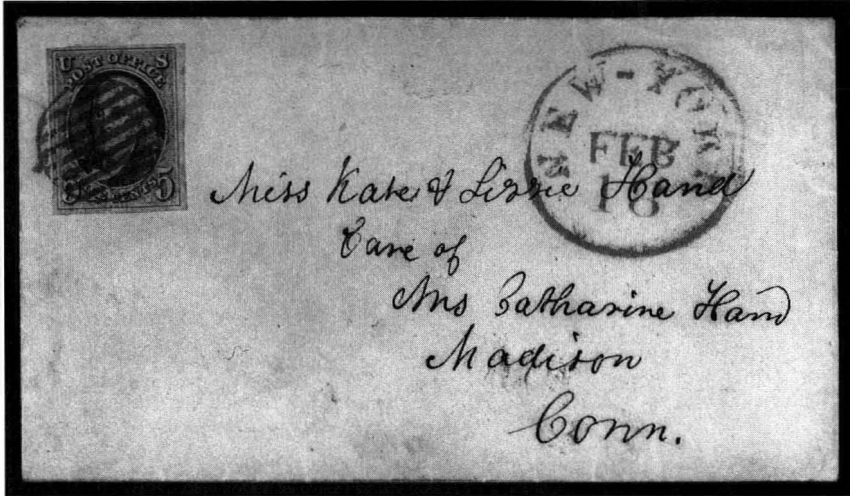 U S
POST OFFICE
FIVE CENTS
5 5
NEW-YORK
FEB
18
Miss Kate & Lizzie Hand
Care of
Mrs Catharine Hand
Madison
Conn.